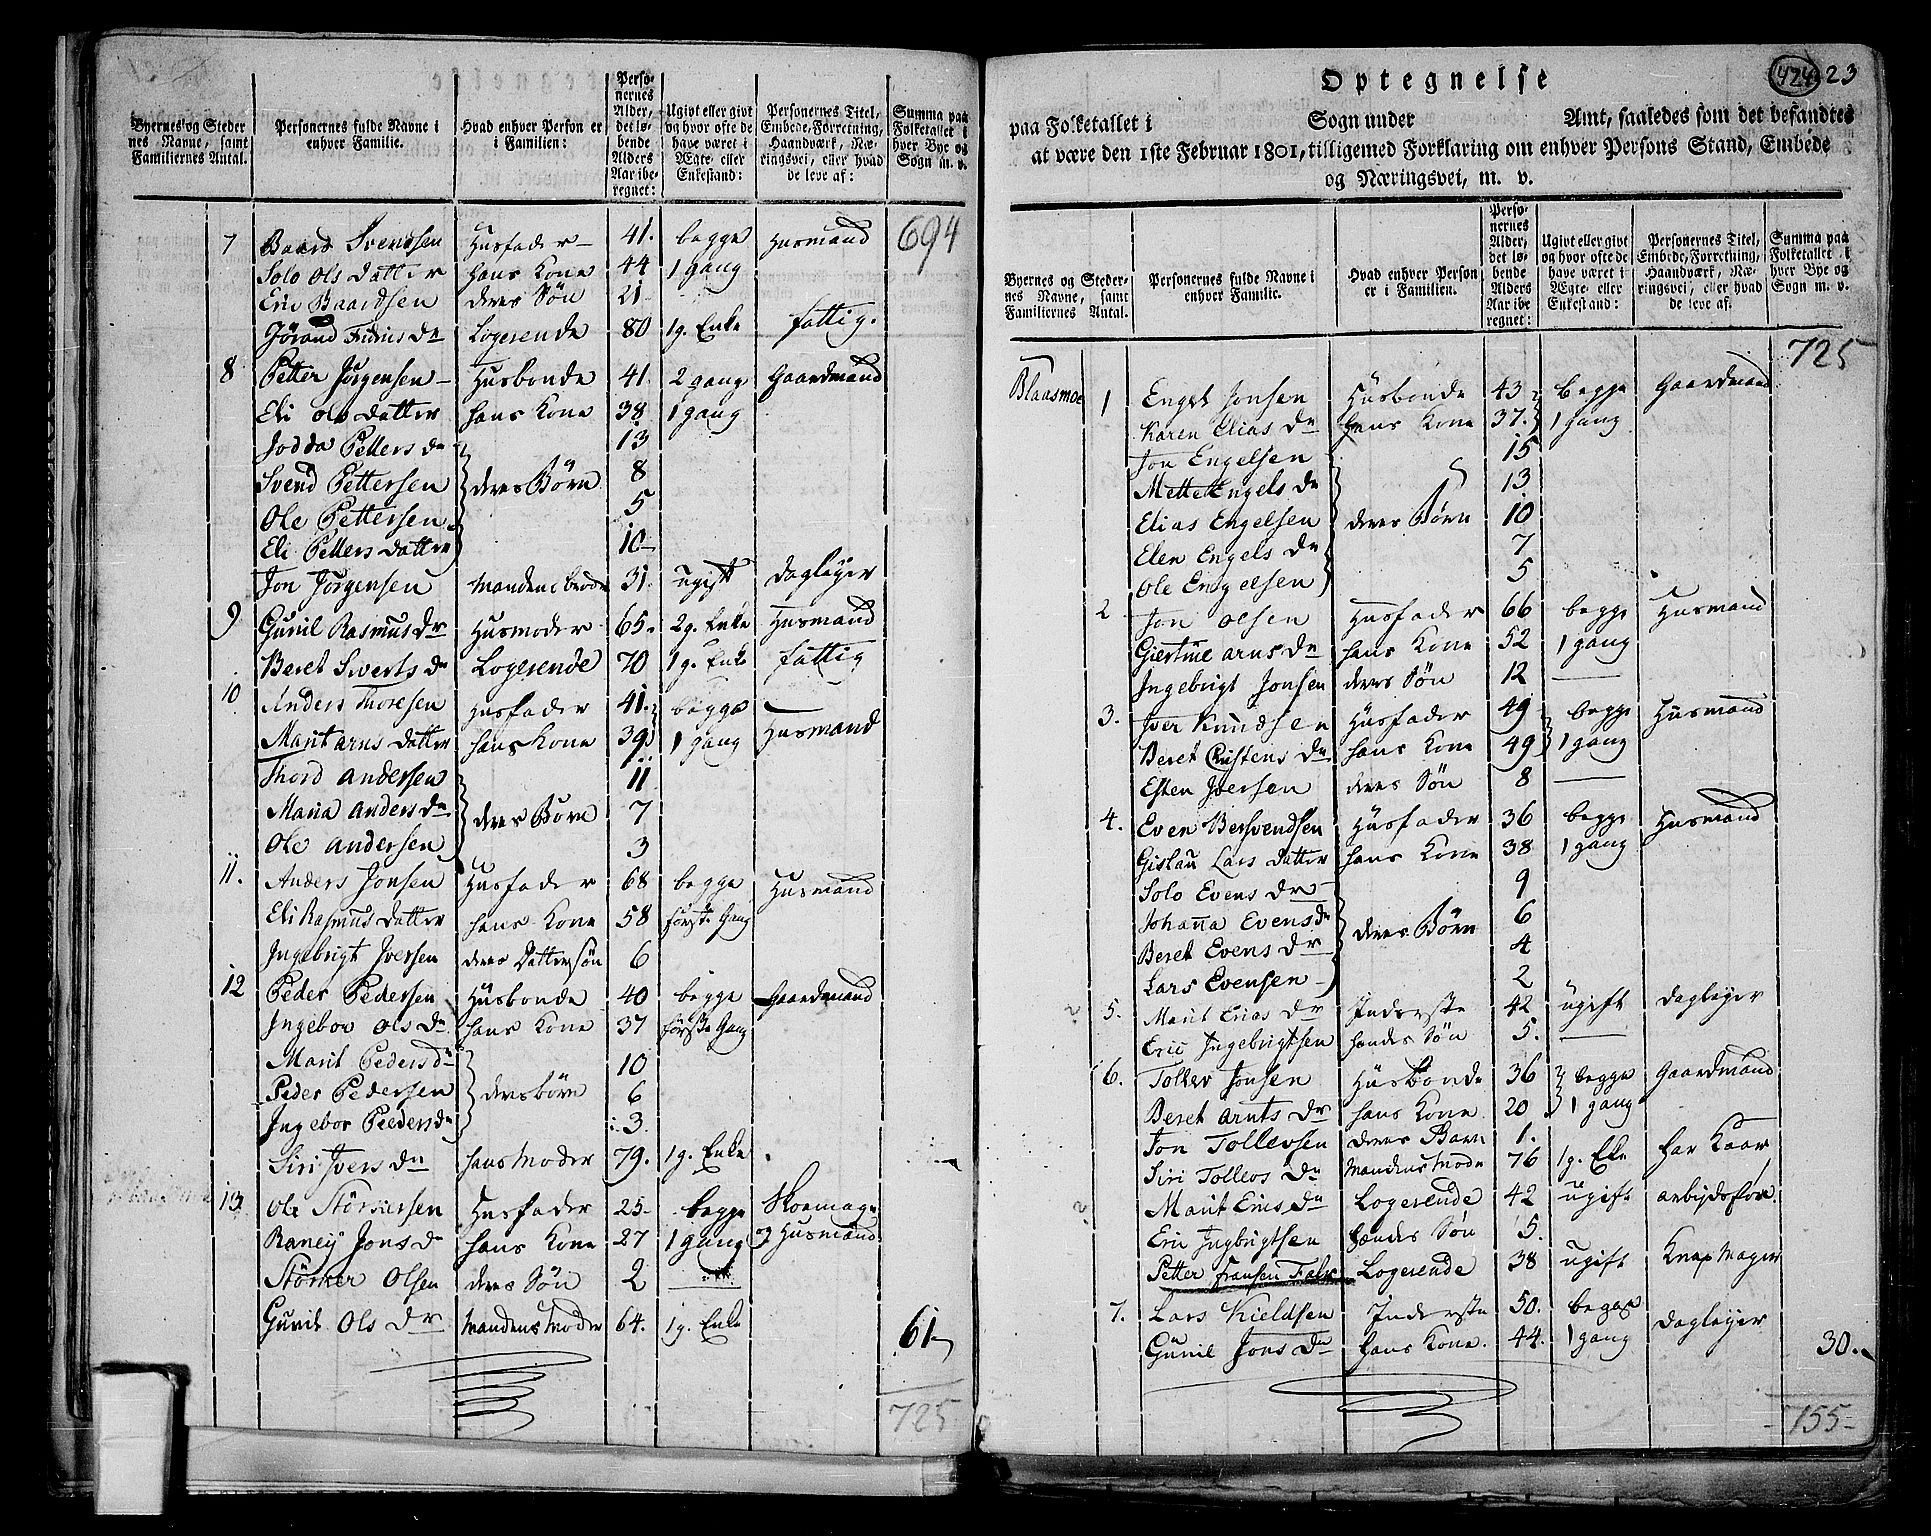 Byernes og Steder
nes Navne, samt
Familiernes Antal.
Personernes fulde Navne i
enhver Familie.
Hvad enhver Person er
i Familien:
Perso-
nernes
Alder,
det lø-
bende
Alders
Aar ibe-
regnet:
Ugivt eller givt
og hvor ofte de
have været i
Ægte- eller
Enkestand:
Personernes Titel,
Embede, Forretning,
Haandværk, Næ-
ringsvei, eller hvad
de leve af:
Summa paa
Folketallet i
hver Bye og
Sogn m. v.
694
7 Baard Svendsen Husfader 41. begge Husmand
Solo Ols Datter Hans Kone 44 1 gang
Eric Baardsen deres Søn 21
Logerende 80 1g. Enke fattig.
8 Petter Jørgensen Husbonde 41. 2 gang Gaardmand
Eli Ols datter Hans Kone 38 1 gang
Petters dr 13
Svend Pettersen deres Børn 8
Ole Pettersen 5
Eli Petters datter 10
Jon Jørgensen Mandens brode 31. ugift Dagløyer
9 Gunil Rasmus Dr Husmoder 65. 2g. Enke Husmand
Beret Siverts dr Logerende 70 1g. Enke fattig
10 Anders Thoresen Husfader 41. begge
Marit Arns datter Hans Kone 39 1 gang Husmand
Thord Andersen 11
Maria Anders dr deres Børn 7
Ole Andersen 3
11. Anders Jonsen Husfader 68 begge Husmand
Eli Rasmus datter Hans Kone 58 første Gang
Ingebrigt Iversen deres Dattersøn 6
12 Peder Pedersen Husbonde 40 begge Gaardmand
Ingebor Ols Dr Hans Kone 37 første Gang
Marit Peders dr 10
Peder Pedersen deres børn 6
Ingebor Peders dr 3.
Siri Ivers dr Hans Moder 79. 1g. Enke
13 Ole Størkersen Husfader 25 begge Skoemager
Jons dr Hans Kone 27 1 gang og Husmand
Størker Olsen deres Søn 2
Gunil Ols Dr Mandens Moder 64. 1g. Enke
61
725
424 23
Optegnelse
paa Folketallet i Sogn under Amt, saaledes som det befandtes
at være den 1ste Februar 1801, tilligemed Forklaring om enhver Persons Stand, Embede
og Næringsvei, m. v.
Byernes og Steder-
nes Navne, samt
Familiernes Antal.
Personernes fulde Navne i
enhver Familie.
Hvad enhver Person
er i Familien.
Perso-
nernes
Alder,
det lø-
bende
Alders
Aar ibe-
regnet:
Ugivt eller givt
og hvor ofte de
have været i
Ægte- eller
Enkestand:
Personernes Titel,
Embede, Forretning,
Haandværk, Næ-
ringsvei, eller hvad
de leve af.
Summa paa
Folketallet i
hver Bye og
Sogn m. v.
725
Blaasmoe 1 Engel Jonsen Husbonde 43 begge Gaardmand
Karen Elias Dr Hans Kone 37. 1 gang
Jon Engelsen 15
Mette Engels dr 13
Elias Engelsen deres Børn 10
Elen Engels Dr 7
Ole Engelsen 5
2 Jon Olsen Husfader 66 begge Husmand
Giertrue Arns Dr Hans Kone 52 1 gang
Ingebrigt Jonsen deres Søn 12
3. Iver Knudsen Husfader 49 begge Husmand
Beret Cristens Dr Hans Kone 49 1 gang
Esten Iversen deres Søn 8
4. Even Bersvendsen Husfader 36 begge Husmand
Lars Datter Hans Kone 38 1 gang
Solo Evens Dr 9
Johanna Evens dr 6
Beret Evens Dr deres Børn 4
Lars Evensen 2
5. Marit Erics Dr Inderste 42 ugift Dagløyer
Eric Ingebrigtsen Hendes Søn 5.
6. Tollev Jonsen Husbonde 36 begge Gaardmand
Beret Arnts Dr Hans Kone 20 1 gang
Jon Tollevsen deres Barn 1.
Siri Tollevs Dr Mandens Mode 76 1g. Eke har Kaar
Marit Erics Dr Logerende 42 ugift arbejdsfør
Eric Ingbrigtsen Hendes Søn 5.
Petter Fransen Falk Logerende 38 ugift Knap Mager
7. Lars Kieldsen Inderste 50. begge
Gunil Jons Dr Hans Kone. 44. 1 gang Dagløyer
30.
755